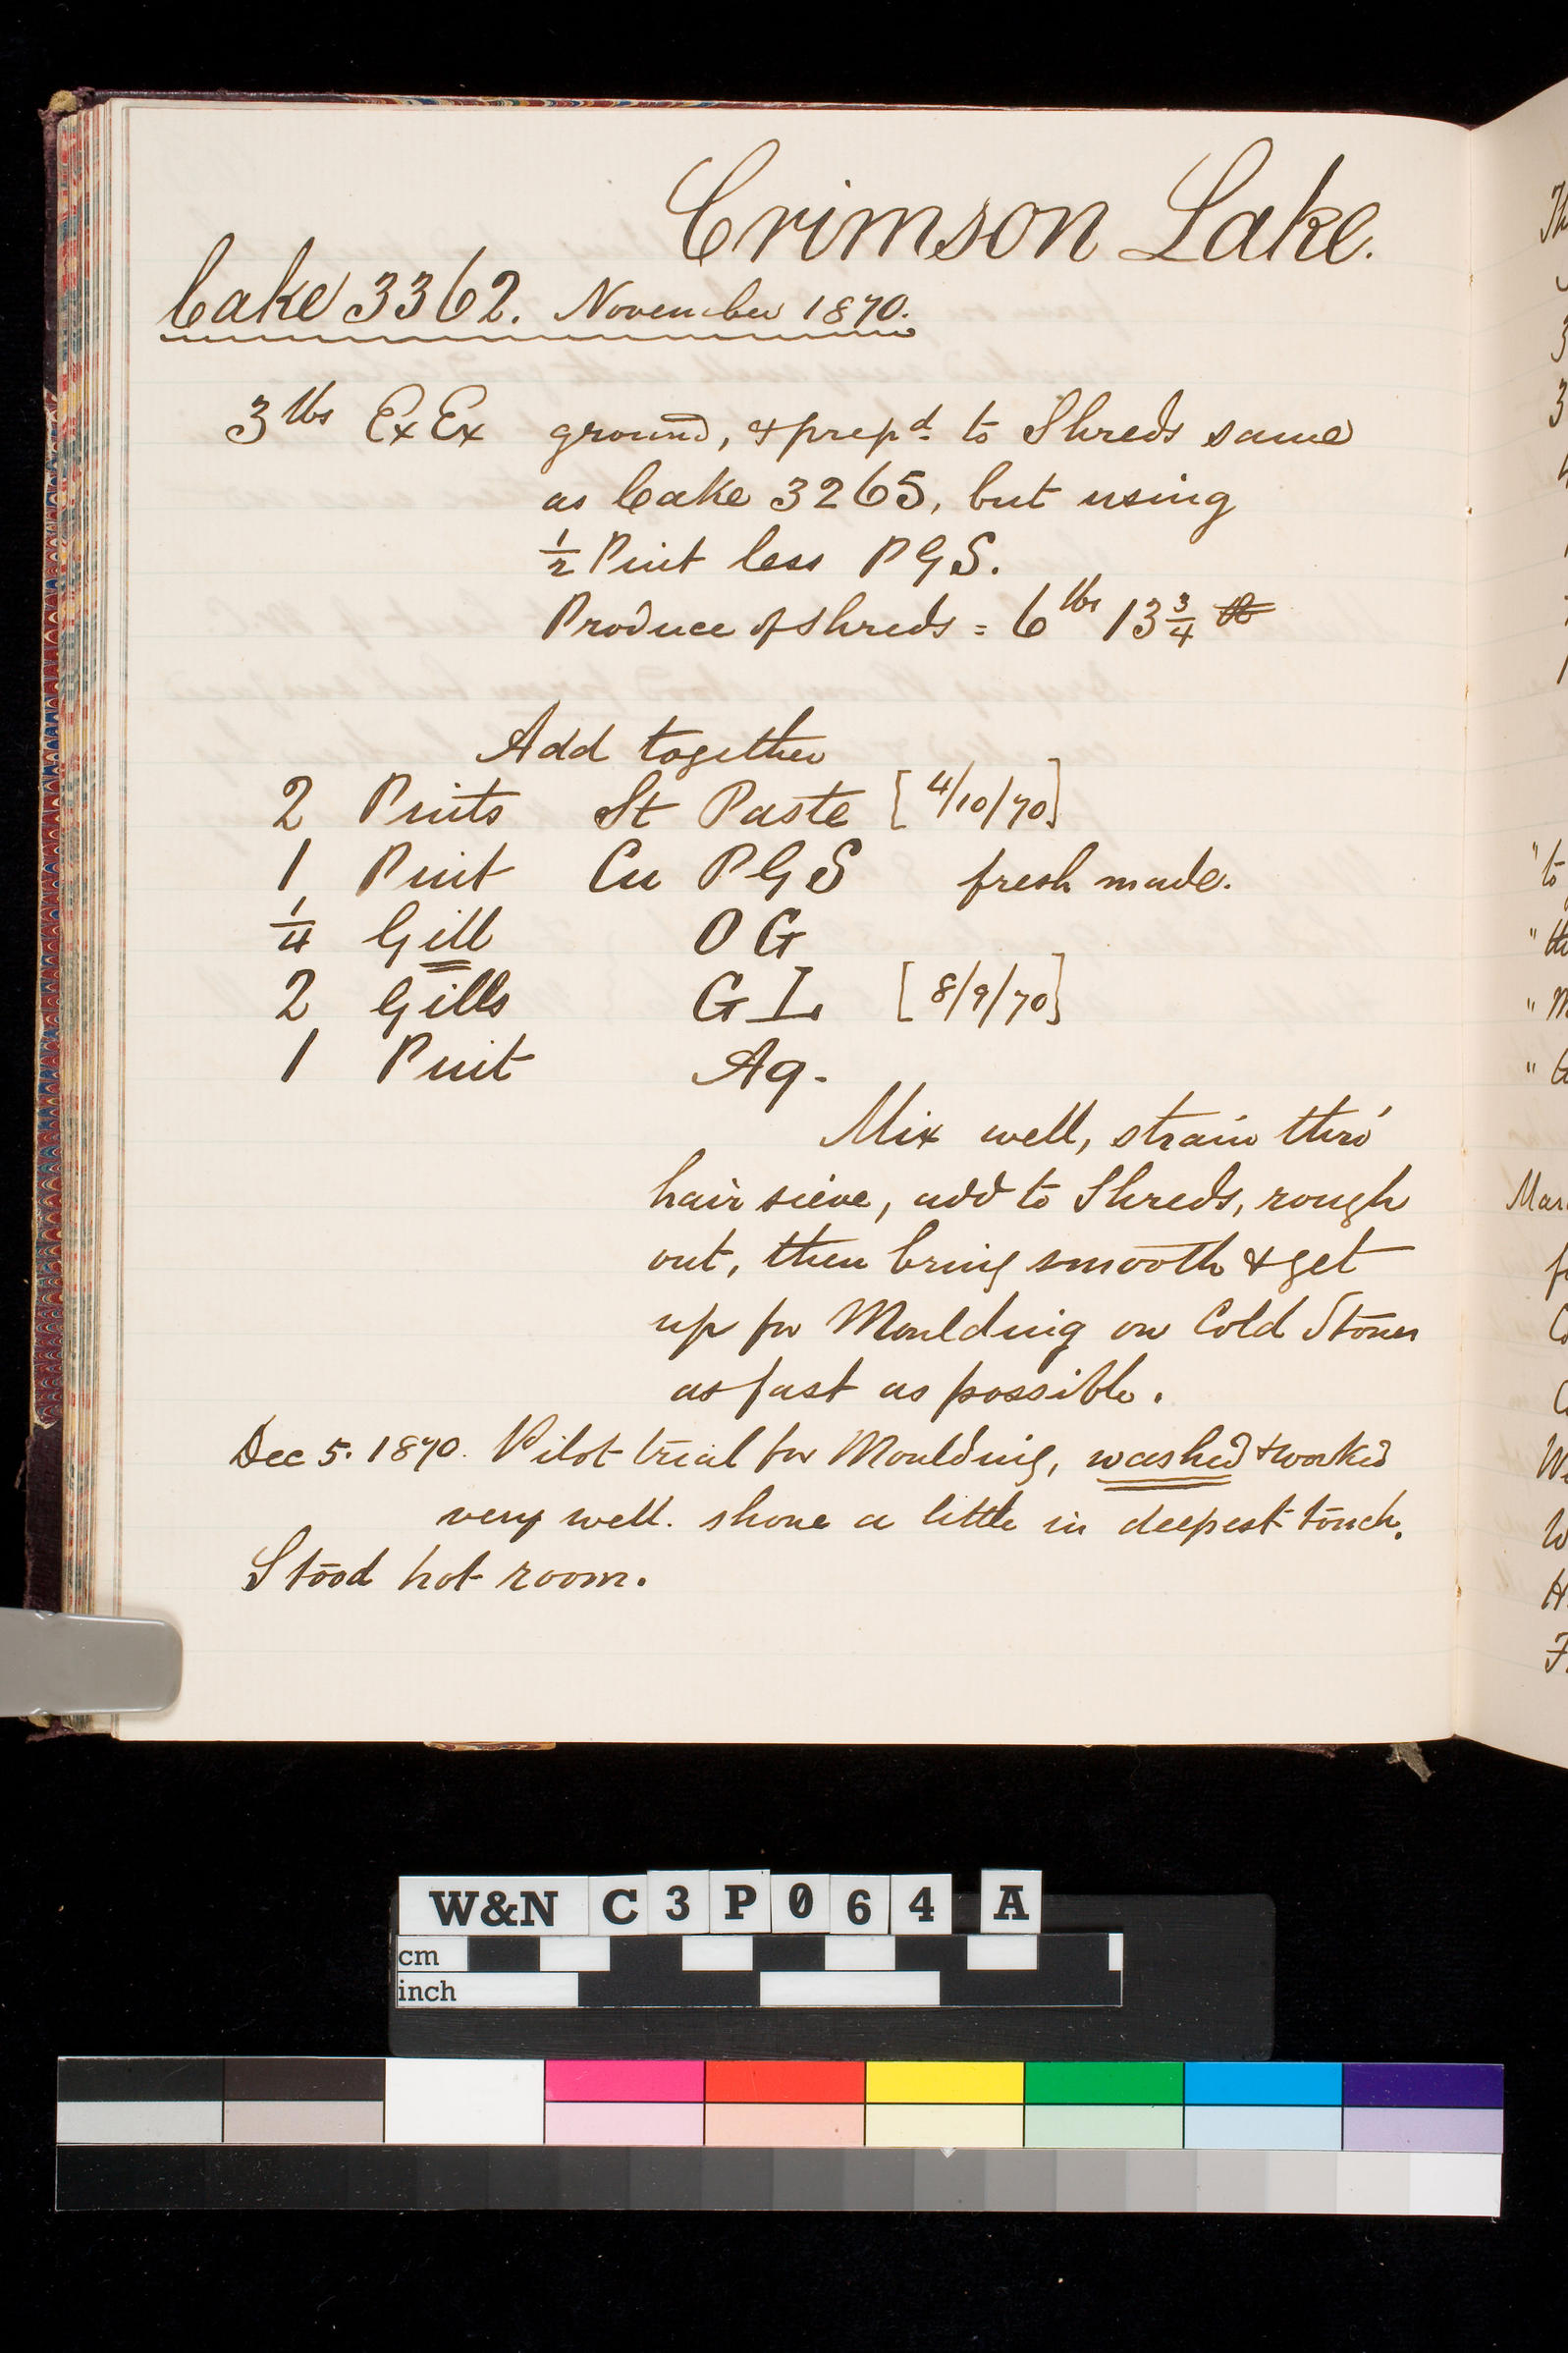 Crimson Lake.
Cake 3362. November 1870.
3 lbs Ex Ex ground, & prepd. to Shreds same
as Cake 3265, but using
½ Pint less PGS.
Produce of shreds = 6 lbs 13¾
Add together
2 Pints St Paste [4/10/70]
1 Pint Cu PGS fresh made.
¼ Gill OG
2 Gills GL [8/9/70]
1 Pint Aq.
Mix well, strain thro'
hair sieve, add to Shreds, rough
out, then bring smooth & get
up for Moulding on Cold Stones
as fast as possible.
Dec 5. 1870. Pilot trial for Moulding, washed & worked
very well. shone a little in deepest touch.
Stood hot room.
W&N C3P064 A
cm
inch